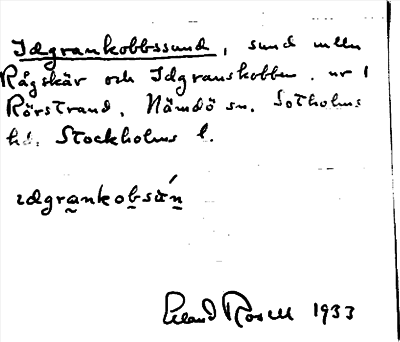 Idgrankobbssund, sund mellan
Rågskär och Idgranskobben. nr 1
Rörstrand, Nämdö sn. Sotholms
hd. Stockholms l.
ɩdgrankobsún
Erland Rosell 1933